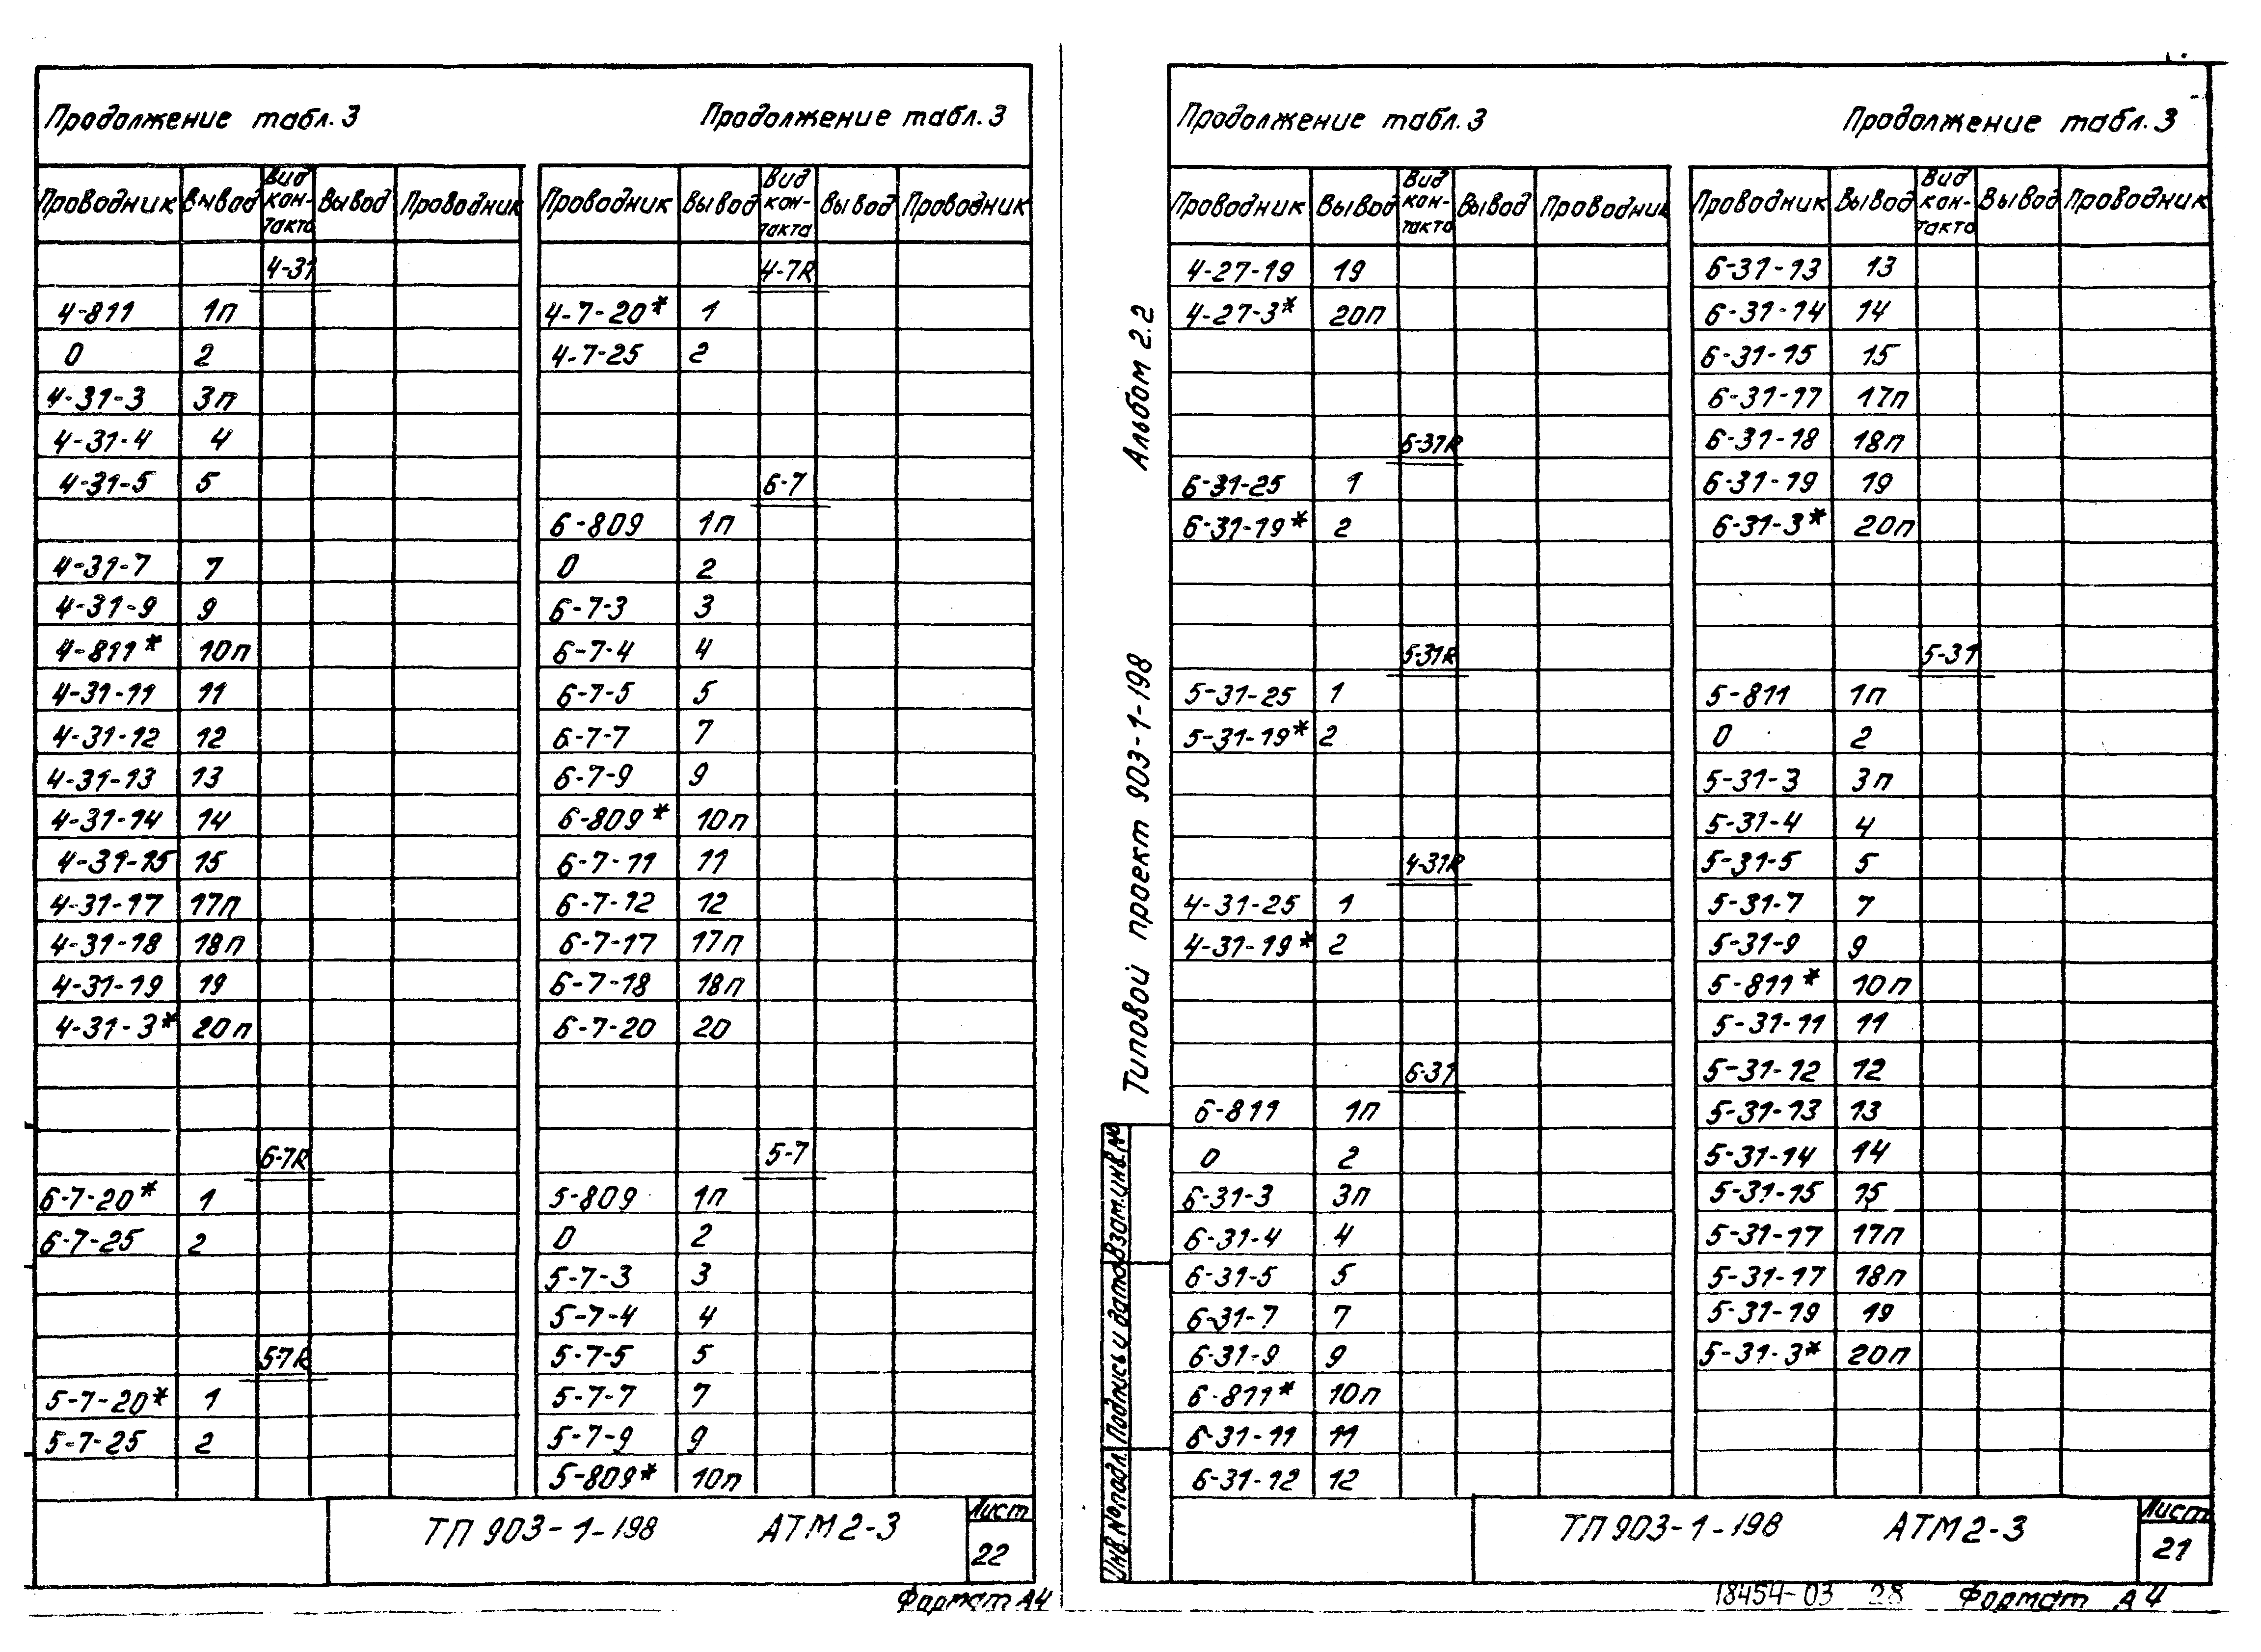 Продолжение табл.3
Проводник Вывод Вид кон- такта Вывод Проводник
4-31
4-811 1п
0 2
4-31-3 3п
4-31-4 4
4-31-5 5
4-31-7 7
4-31-9 9
4-811* 10п
4-31-11 11
4-31-12 12
4-31-13 13
4-31-14 14
4-31-15 15
4-31-17 17п
4-31-18 18п
4-31-19 19
4-31-3* 20п
6-7R
6-7-20* 1
6-7-25 2
5-7R
5-7-20* 1
5-7-25 2
Продолжение табл.3
Проводник Вывод Вид кон- такта Вывод Проводник
4-7R
4-7-20* 1
4-7-25 2
6-7
6-809 1п
0 2
6-7-3 3
6-7-4 4
6-7-5 5
6-7-7 7
6-7-9 9
6-809* 10п
6-7-11 11
6-7-12 12
6-7-17 17п
6-7-18 18п
6-7-20 20
5-7
5-809 1п
0 2
5-7-3 3
5-7-4 4
5-7-5 5
5-7-7 7
5-7-9 9
5-809* 10п
ТП 903-1-198 АТМ2-3
Лист
22
Формат А4
Альбом 2.2
Типовой проект 903-1-198
Взам.инв.№
Подпись и дата
Инв.№подл.
Продолжение табл.3
Проводник Вывод Вид кон- такта Вывод Проводник
4-27-19 19
4-27-3* 20п
6-31R
6-31-25 1
6-31-19* 2
5-31R
5-31-25 1
5-31-19* 2
4-31R
4-31-25 1
4-31-19* 2
6-31
6-811 1п
0 2
6-31-3 3п
6-31-4 4
6-31-5 5
6-31-7 7
6-31-9 9
6-811* 10п
6-31-11 11
6-31-12 12
Продолжение табл.3
Проводник Вывод Вид кон- такта Вывод Проводник
6-31-13 13
6-31-14 14
6-31-15 15
6-31-17 17п
6-31-18 18п
6-31-19 19
6-31-3* 20п
5-31
5-811 1п
0 2
5-31-3 3п
5-31-4 4
5-31-5 5
5-31-7 7
5-31-9 9
5-811* 10п
5-31-11 11
5-31-12 12
5-31-13 13
5-31-14 14
5-31-15 15
5-31-17 17п
5-31-17 18п
5-31-19 19
5-31-3* 20п
ТП 903-1-198 АТМ2-3
Лист
21
18454-03 28 Формат А4